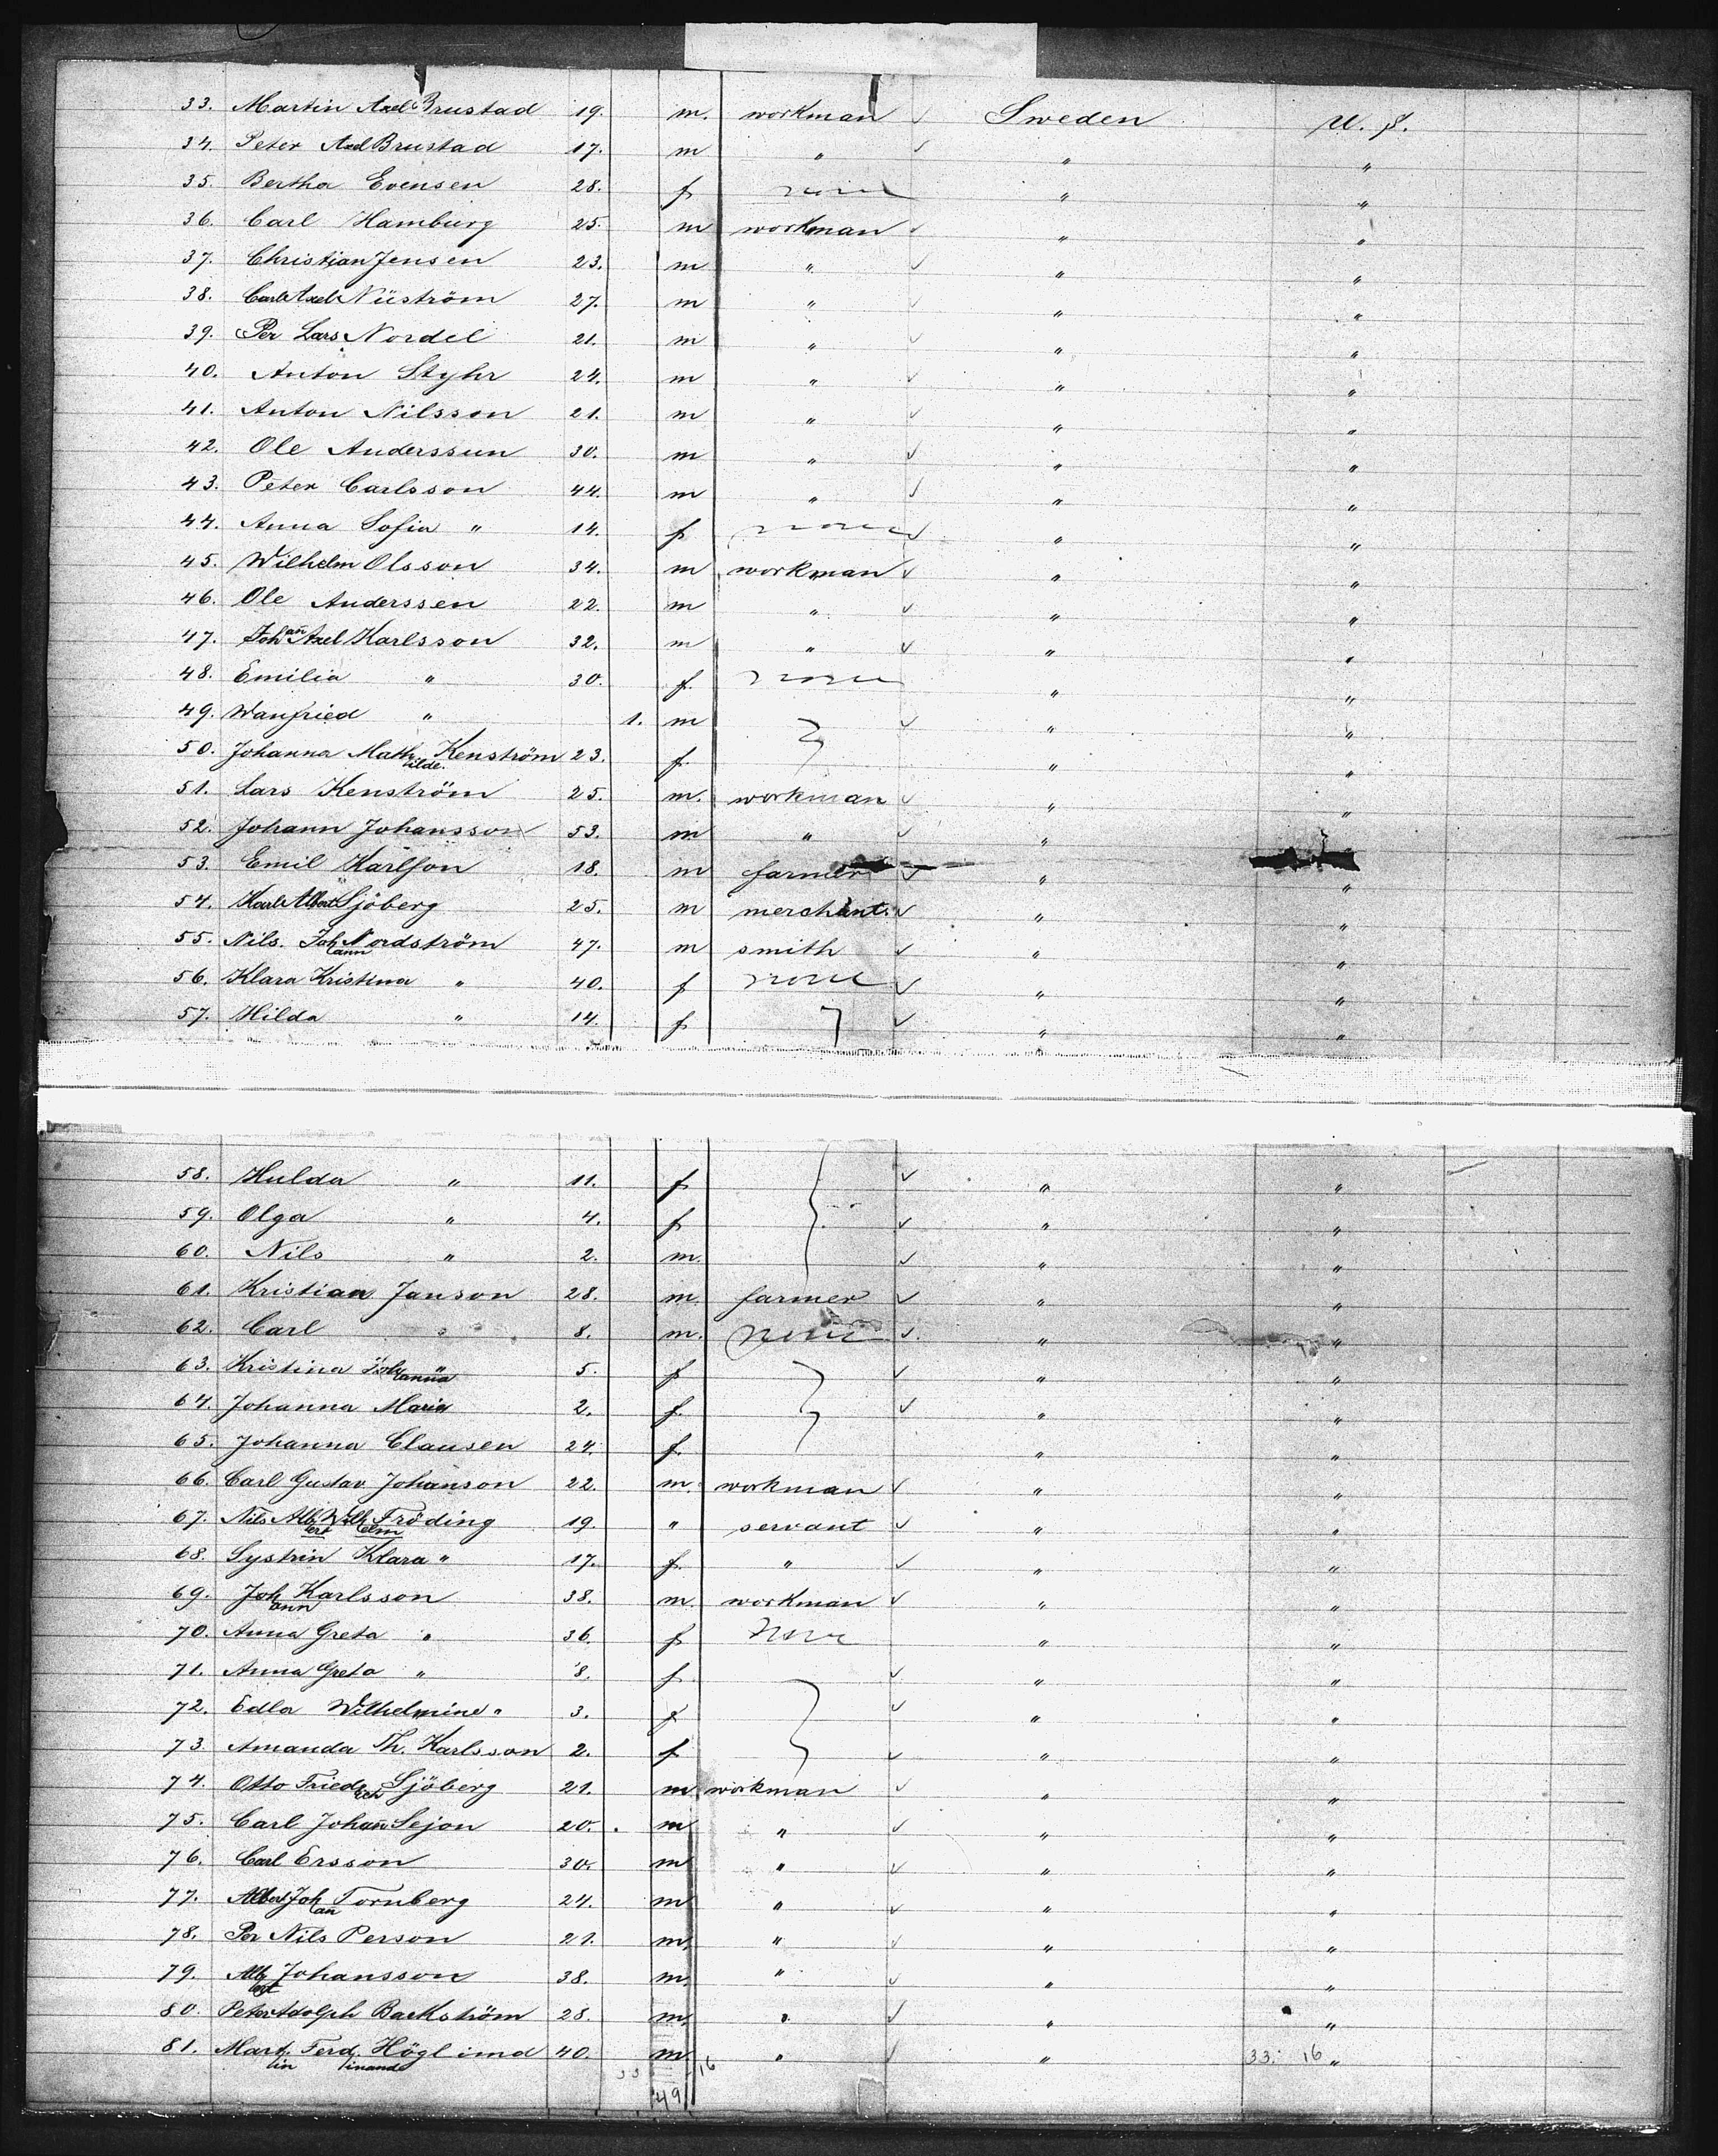 33. Martin Axel Brustad 19. m. workman ✓ Sweden U. S.
34. Peter Axel Brustad 17. m " ✓ " "
35. Bertha Evensen 28. f none " "
36. Carl Hamburg 25. m workman ✓ " "
37. Christian Jensen 23. m " ✓ " "
38. Carl Axel Nüström 27. m " ✓ " "
39. Per Lars Nordel 21. m " ✓ " "
40. Anton Styhr 24. m " ✓ " "
41. Anton Nilsson 21. m " ✓ " "
42. Ole Anderssun 30. m " ✓ " "
43. Peter Carlsson 44. m " ✓ " "
44. Anna Sofia " 14. f none ✓ " "
45. Wilhelm Olsson 34. m workman ✓ " "
46. Ole Anderssen 22. m " ✓ " "
47. Johan Axel Karlsson 32. m " ✓ " "
48. Emilia " 30. f. none " "
49. Wanfried " 1. m ✓ " "
50. Johanna Mathilde. Kenström 23. f. " "
51. Lars Kenström 25. m. workman ✓ " "
52. Johann Johansson 53. m " ✓ " "
53. Emil Karlson 18. m farmer ✓ " "
54. Karl Albert Sjöberg 25. m merchant. ✓ " "
55. Nils. Johann Nordström 47. m smith ✓ " "
56. Klara Kristina " 40. f none ✓ " "
57. Hilda " 14. f ✓ " "
58. Hulda " 11. f ✓ " "
59. Olga " 4. f ✓ " "
60. Nils " 2. m. ✓ " "
61. Kristian Janson 28. m. farmer ✓ " "
62. Carl " 8. m. none ✓. " "
63. Kristina Johanna " 5. f ✓ " "
64. Johanna Maria 2. f. ✓ " "
65. Johanna Clausen 24. f. " "
66. Carl Gustav Johanson 22. m. workman ✓ " "
67. Nils Albert Wilhelm Fröding 19. " servant ✓ " "
68. Systrin Klara " 17. f. " ✓ " "
69. Johann Karlsson 38. m. workman ✓ " "
70. Anna Greta " 36. f none " "
71. Anna Greta " 8. f. ✓ " "
72. Edla Wilhelmine " 3. f ✓ " "
73. Amanda Th. Karlsson 2. f ✓ " "
74. Otto Friedrich Sjöberg 21. m workman ✓ " "
75. Carl Johan Sejon 20. m " ✓ " "
76. Carl Ersson 30. m " ✓ " "
77. Albert Johan Tornberg 24. m " ✓ " "
78. Per Nils Person 21. m. " ✓ " "
79. Albert Johansson 38. m. " ✓ " "
80. Peter Adolph Backström 28. m. " ✓ " "
81. Martin Ferdinand Höglimd 40. m. " ✓ " 33. 16 "
33 16
49